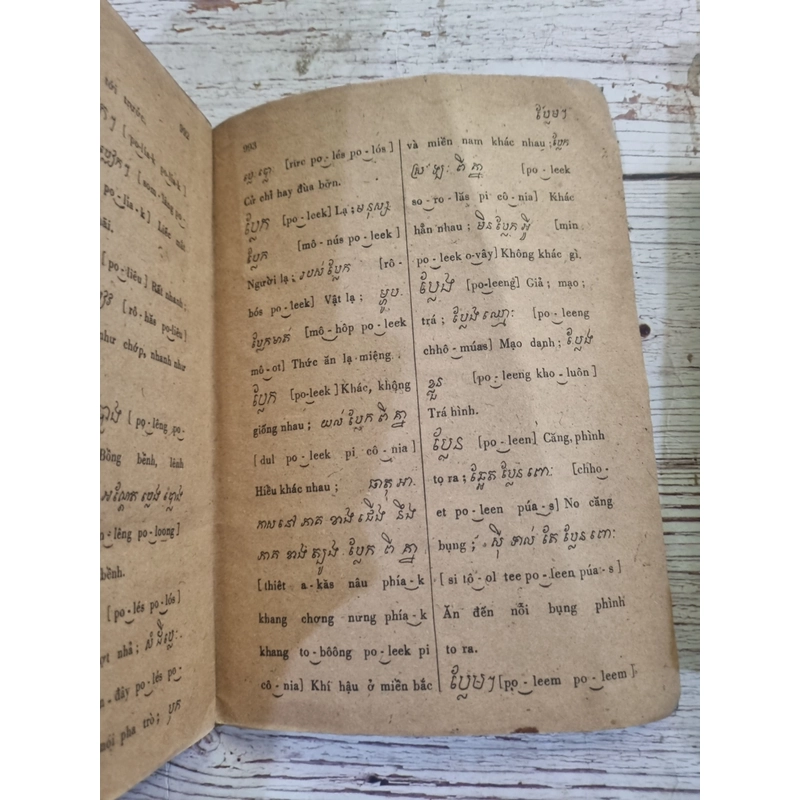 tới trước.
992
[po-liek po-liek]
-liak] Liếc mắt
[po-liêu] Rất nhanh;
[rô-hăs po-liêu]
như chớp, nhanh như
[po-lêng po-
Bồng bềnh, lênh
-lêng po-loong]
bềnh.
[po-lés po-lós]
-đây po-lés po-
nói pha trò;
993
ប្លែមៗ
[rirc po-lés po-lós]
Cử chỉ hay đùa bỡn.
ប្លែក [po-leek] Lạ; មនុស្ស
ប្លែក [mô-nús po-leek]
Người lạ; របស់ ប្លែក [rô-
bós po-leek] Vật lạ; ម្ហូប
ប្លែកមាត់ [mô-hôp po-leek
mô-ot] Thức ăn lạ miệng.
ប្លែក [po-leek] Khác, không
giống nhau; យល់ ប្លែក ពី គ្នា
[dul po-leek pi cô-nia]
Hiểu khác nhau; ធាតុ អា-
កាស នៅ ភាគ ខាង ជើង នឹង
ភាគ ខាង ត្បូង ប្លែក ពី គ្នា
[thiêt a-kăs nâu phía-k
khang chơng nưng phía-k
khang to-bôông po-leek pi
cô-nia] Khí hậu ở miền bắc
và miền nam khác nhau; ប្លែក
ស្រឡះ ពី គ្នា [po-leek
so-ro-lăs pi cô-nia] Khác
hẳn nhau; មិន ប្លែក អ្វី [min
po-leek o-vây] Không khác gì.
ប្លែង [po-leeng] Giả; mạo;
trá; ប្លែង ឈ្មោះ [po-leeng
chhô-múas] Mạo danh; ប្លែង
ខ្លួន [po-leeng kho-luôn]
Trá hình.
ប្លែន [po-leen] Căng, phình
to ra; ឆ្អែត ប្លែន ពោះ [chho-
et po-leen púa-s] No căng
bụng; ស៊ី ទាល់ តែ ប្លែន ពោះ
[si tô-ol tee po-leen púa-s]
Ăn đến nỗi bụng phình
to ra.
ប្លែមៗ [po-leem po-leem]